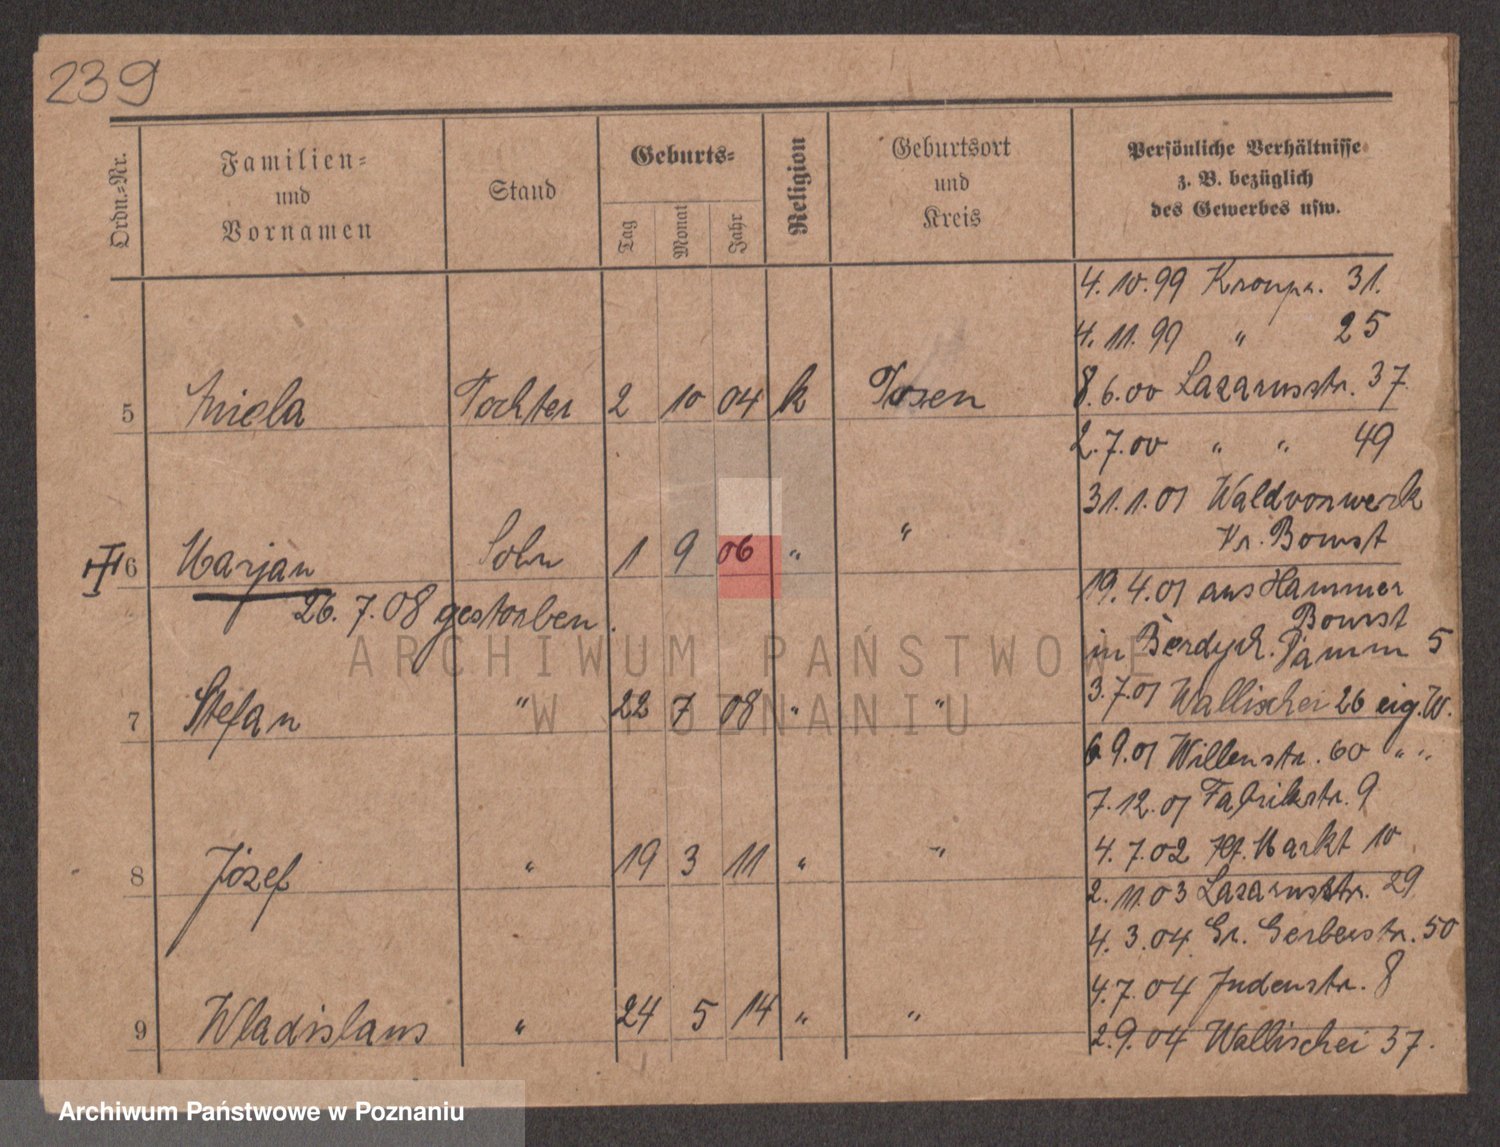 239
Ordn.-Nr.
Familien-
und
Vornamen
Stand
Geburts-
Tag
Monat
Jahr
Religion
Geburtsort
und
Kreis
Persönliche Verhältnisse
z. B. bezüglich
des Gewerbes usw.
4. 10. 99 Kronpr. 31.
4. 11. 99 " 25
5 Aniela Tochter 2 10 04 k Posen
8. 6. 00 Lazarusstr. 37
2. 7. 00 " " 49
31. 1. 01 Waldvorwerk
Kr. Bomst
6 Marjan Sohn 1 9 06 " "
26. 7. 08 gestorben.
19. 4. 01 aus Hammer
Bomst
in Berdych. Damm 5
7 Stefan " 22 7 08 " "
3. 7. 01 Wallischei 26 eig. W.
6. 9. 01 Willenstr. 60 " "
7. 12. 01 Fabrikstr. 9
8 Józef " 19 3 11 " "
4. 7. 02 Markt 10
2. 11. 03 Lazarusstr. 29
4. 3. 04 Gr. Gerberstr. 50
4. 7. 04 Judenstr. 8
9 Wladislaus " 24 5 14 " "
2. 9. 04 Wallischei 37.
ARCHIWUM PAŃSTWOWE
W POZNANIU
Archiwum Państwowe w Poznaniu